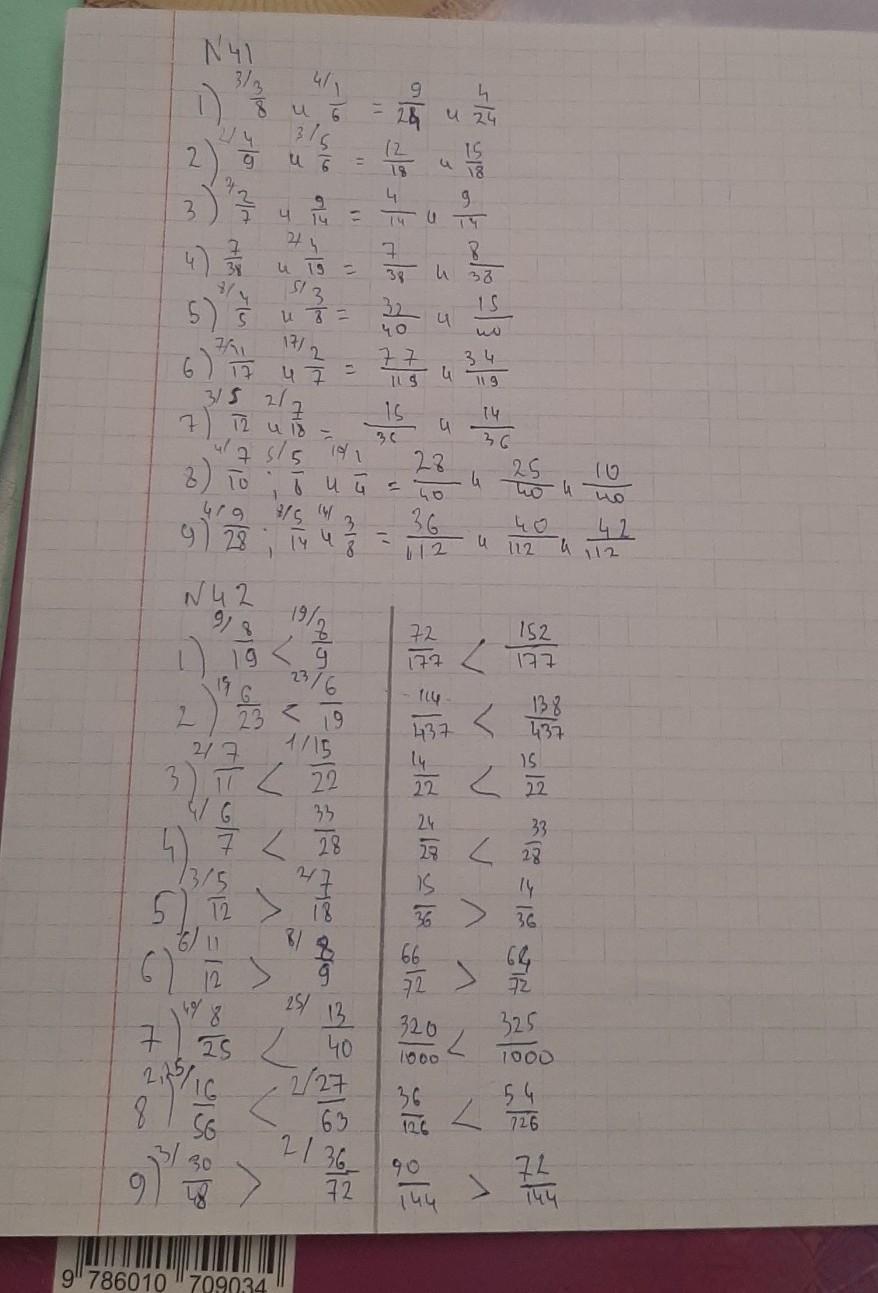 N 41
1) 3/ 3/8 и 4/ 1/6 = 9/24 и 4/24
2) 2/ 4/9 и 3/ 5/6 = 12/18 и 15/18
3) 2/ 2/7 и 9/14 = 4/14 и 9/14
4) 7/38 и 2/ 4/19 = 7/38 и 8/38
5) 8/ 4/5 и 5/ 3/8 = 32/40 и 15/40
6) 7/ 11/17 и 17/ 2/7 = 77/119 и 34/119
7) 3/ 5/12 и 2/ 7/18 = 15/36 и 14/36
8) 4/ 7/10 ; 5/ 5/8 и 10/ 1/4 = 28/40 и 25/40 и 10/40
9) 4/ 9/28 ; 8/ 5/14 и 14/ 3/8 = 36/112 и 40/112 и 42/112
N 42
1) 9/ 8/19 < 19/ 8/9 72/177 < 152/177
2) 19 6/23 < 23/ 6/19 114/437 < 138/437
3) 2/ 7/11 < 1/ 15/22 14/22 < 15/22
4) 4/ 6/7 < 33/28 24/28 < 33/28
5) 3/ 5/12 > 2/ 7/18 15/36 > 14/36
6) 6/ 11/12 > 8/ 8/9 66/72 > 64/72
7) 40/ 8/25 < 25/ 13/40 320/1000 < 325/1000
8) 2,25/ 16/56 < 2/ 27/63 36/126 < 54/126
9) 3/ 30/48 > 2/ 36/72 90/144 > 72/144
9 786010 709034